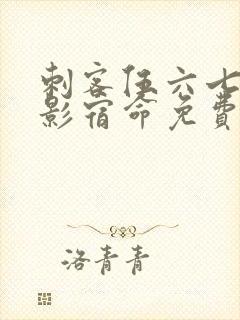 刺客伍六七
影宿命免费
洛青青